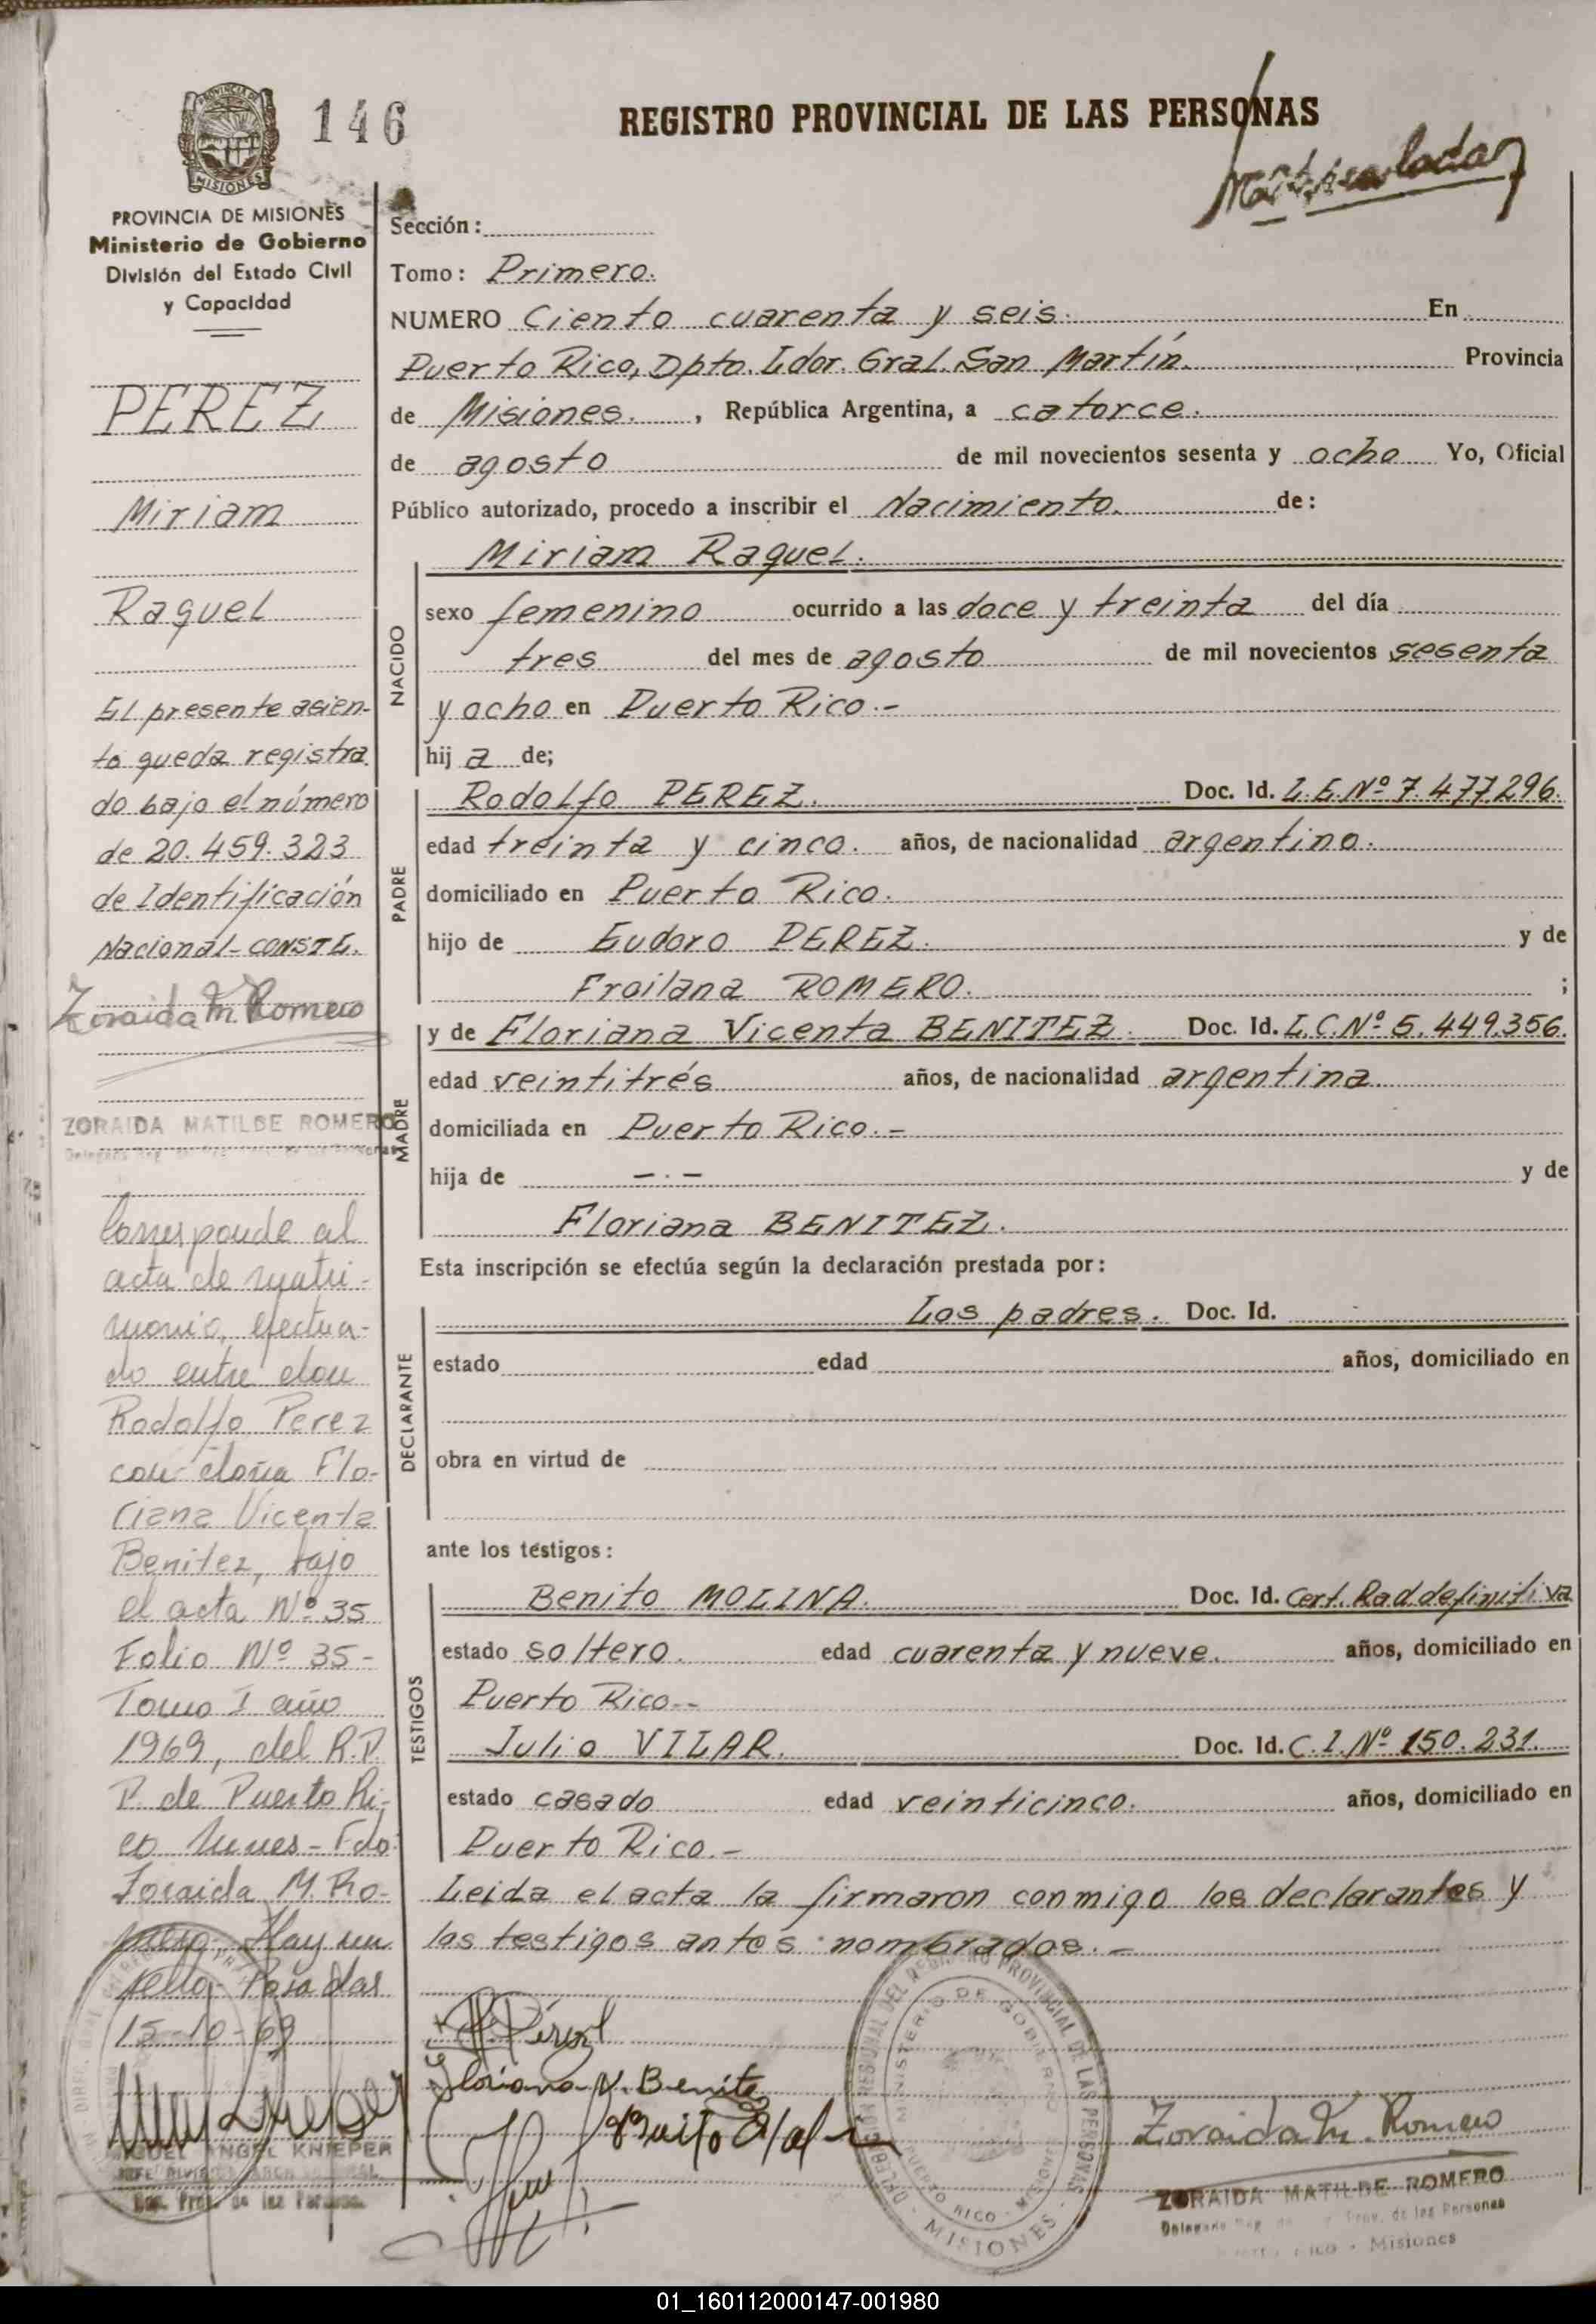 146
REGISTRO PROVINCIAL DE LAS PERSONAS
MISIONES
PROVINCIA DE MISIONES
Ministerio de Gobierno
División del Estado Civil
y Capacidad
PEREZ
Miriam
Raquel
El presente asien-
to queda registra
do bajo el número
de 20.459.323
de Identificación
Nacional-CONSTE.
Zoraida M. Romero
ZORAIDA MATILDE ROMERO
Corresponde al
acta de matri-
monio, efectua-
do entre don
Rodolfo Perez
con doña Flo-
riana Vicenta
Benitez, bajo
el acta Nº 35
Folio Nº 35-
Tomo I año
1969, del R.P.
P. de Puerto Ri-
co
Zoraida M. Ro-
mero, Hay un
sello-Posadas
15-10-69
MIGUEL ANGEL KNIEPER
Sección:
Tomo: Primero.
NUMERO Ciento cuarenta y seis. En
Puerto Rico, Dpto. Ldor. Gral. San Martín. Provincia
de Misiones., República Argentina, a catorce.
de agosto de mil novecientos sesenta y ocho Yo, Oficial
Público autorizado, procedo a inscribir el Nacimiento. de:
Miriam Raquel.
NACIDO
sexo femenino ocurrido a las doce y treinta del día
tres del mes de agosto de mil novecientos sesenta
y ocho en Puerto Rico.-
hij a de;
PADRE
Rodolfo PEREZ. Doc. Id. L.E.Nº 7.477.296.
edad treinta y cinco. años, de nacionalidad argentino.
domiciliado en Puerto Rico.
hijo de Eudoro PEREZ. y de
Froilana ROMERO. ;
MADRE
y de Floriana Vicenta BENITEZ. Doc. Id. L.C.Nº 5.449.356.
edad veintitrés años, de nacionalidad argentina
domiciliada en Puerto Rico.-
hija de -.- y de
Floriana BENITEZ.
Esta inscripción se efectúa según la declaración prestada por:
DECLARANTE
Los padres. Doc. Id.
estado edad años, domiciliado en
obra en virtud de
ante los testigos:
TESTIGOS
Benito MOLINA. Doc. Id. Cert. Rad.definitiva
estado soltero. edad cuarenta y nueve. años, domiciliado en
Puerto Rico.-
Julio VILAR. Doc. Id. C.I.Nº 150.231.
estado casado edad veinticinco. años, domiciliado en
Puerto Rico.-
Leida el acta la firmaron conmigo los declarantes y
los testigos antes nombrados.-
Floriana V. Benitez
DELEGACION REGIONAL DEL REGISTRO PROVINCIAL DE LAS PERSONAS
MINISTERIO DE GOBIERNO
PUERTO RICO - MISIONES
MISIONES
Zoraida M. Romero
ZORAIDA MATILDE ROMERO
Prov. de las Personas
Misiones
01_160112000147-001980